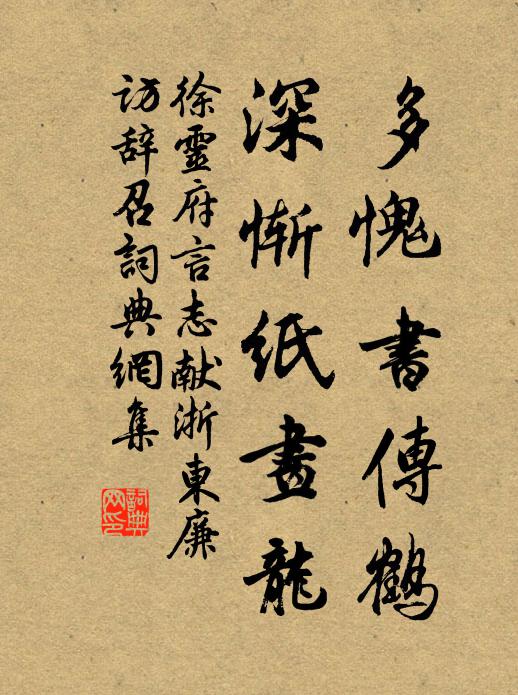 多愧書傳鶴
深慚紙畫龍
徐靈府言志献浙東廉
訪辞召詞典網集
詞典
网印